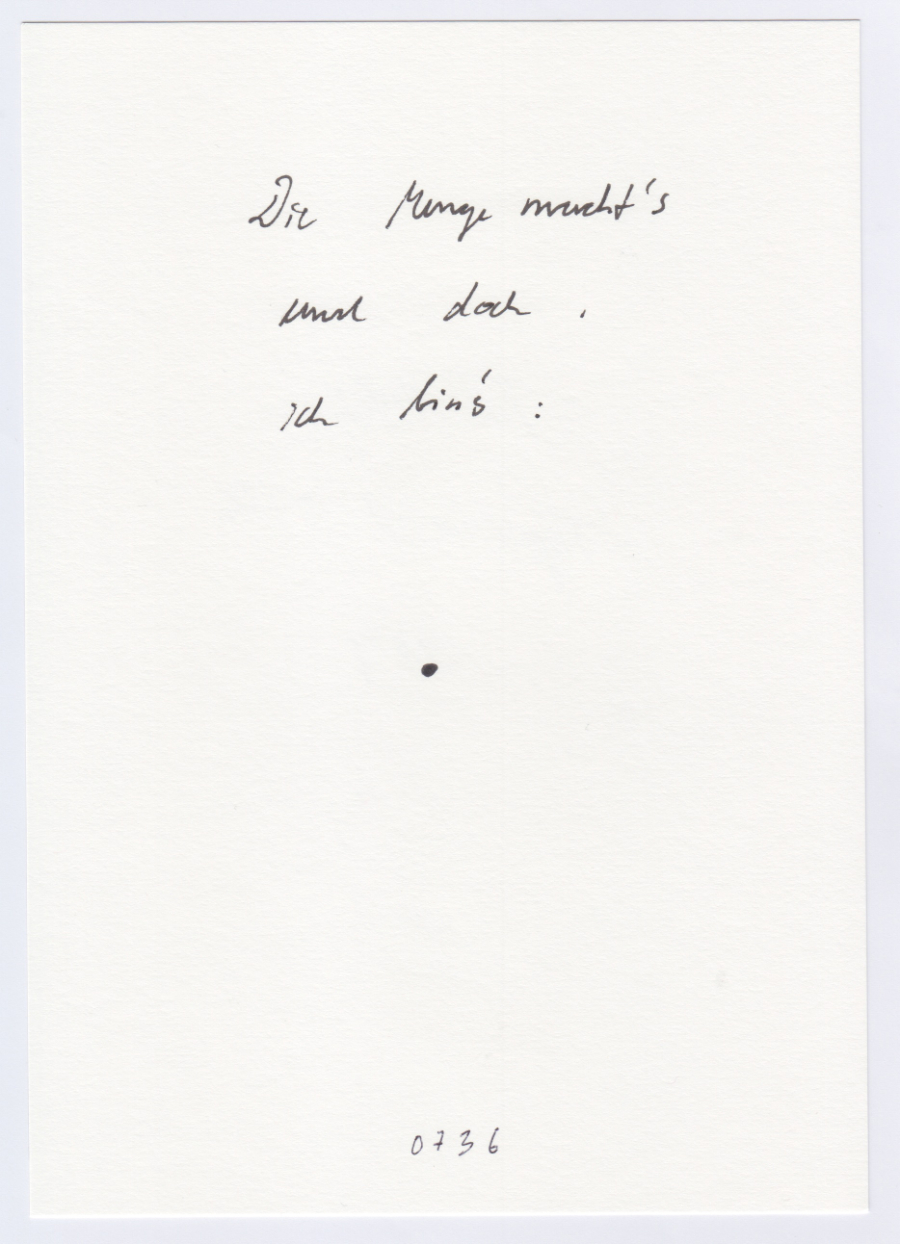 Die Menge macht's
und doch,
ich bin's:
0736